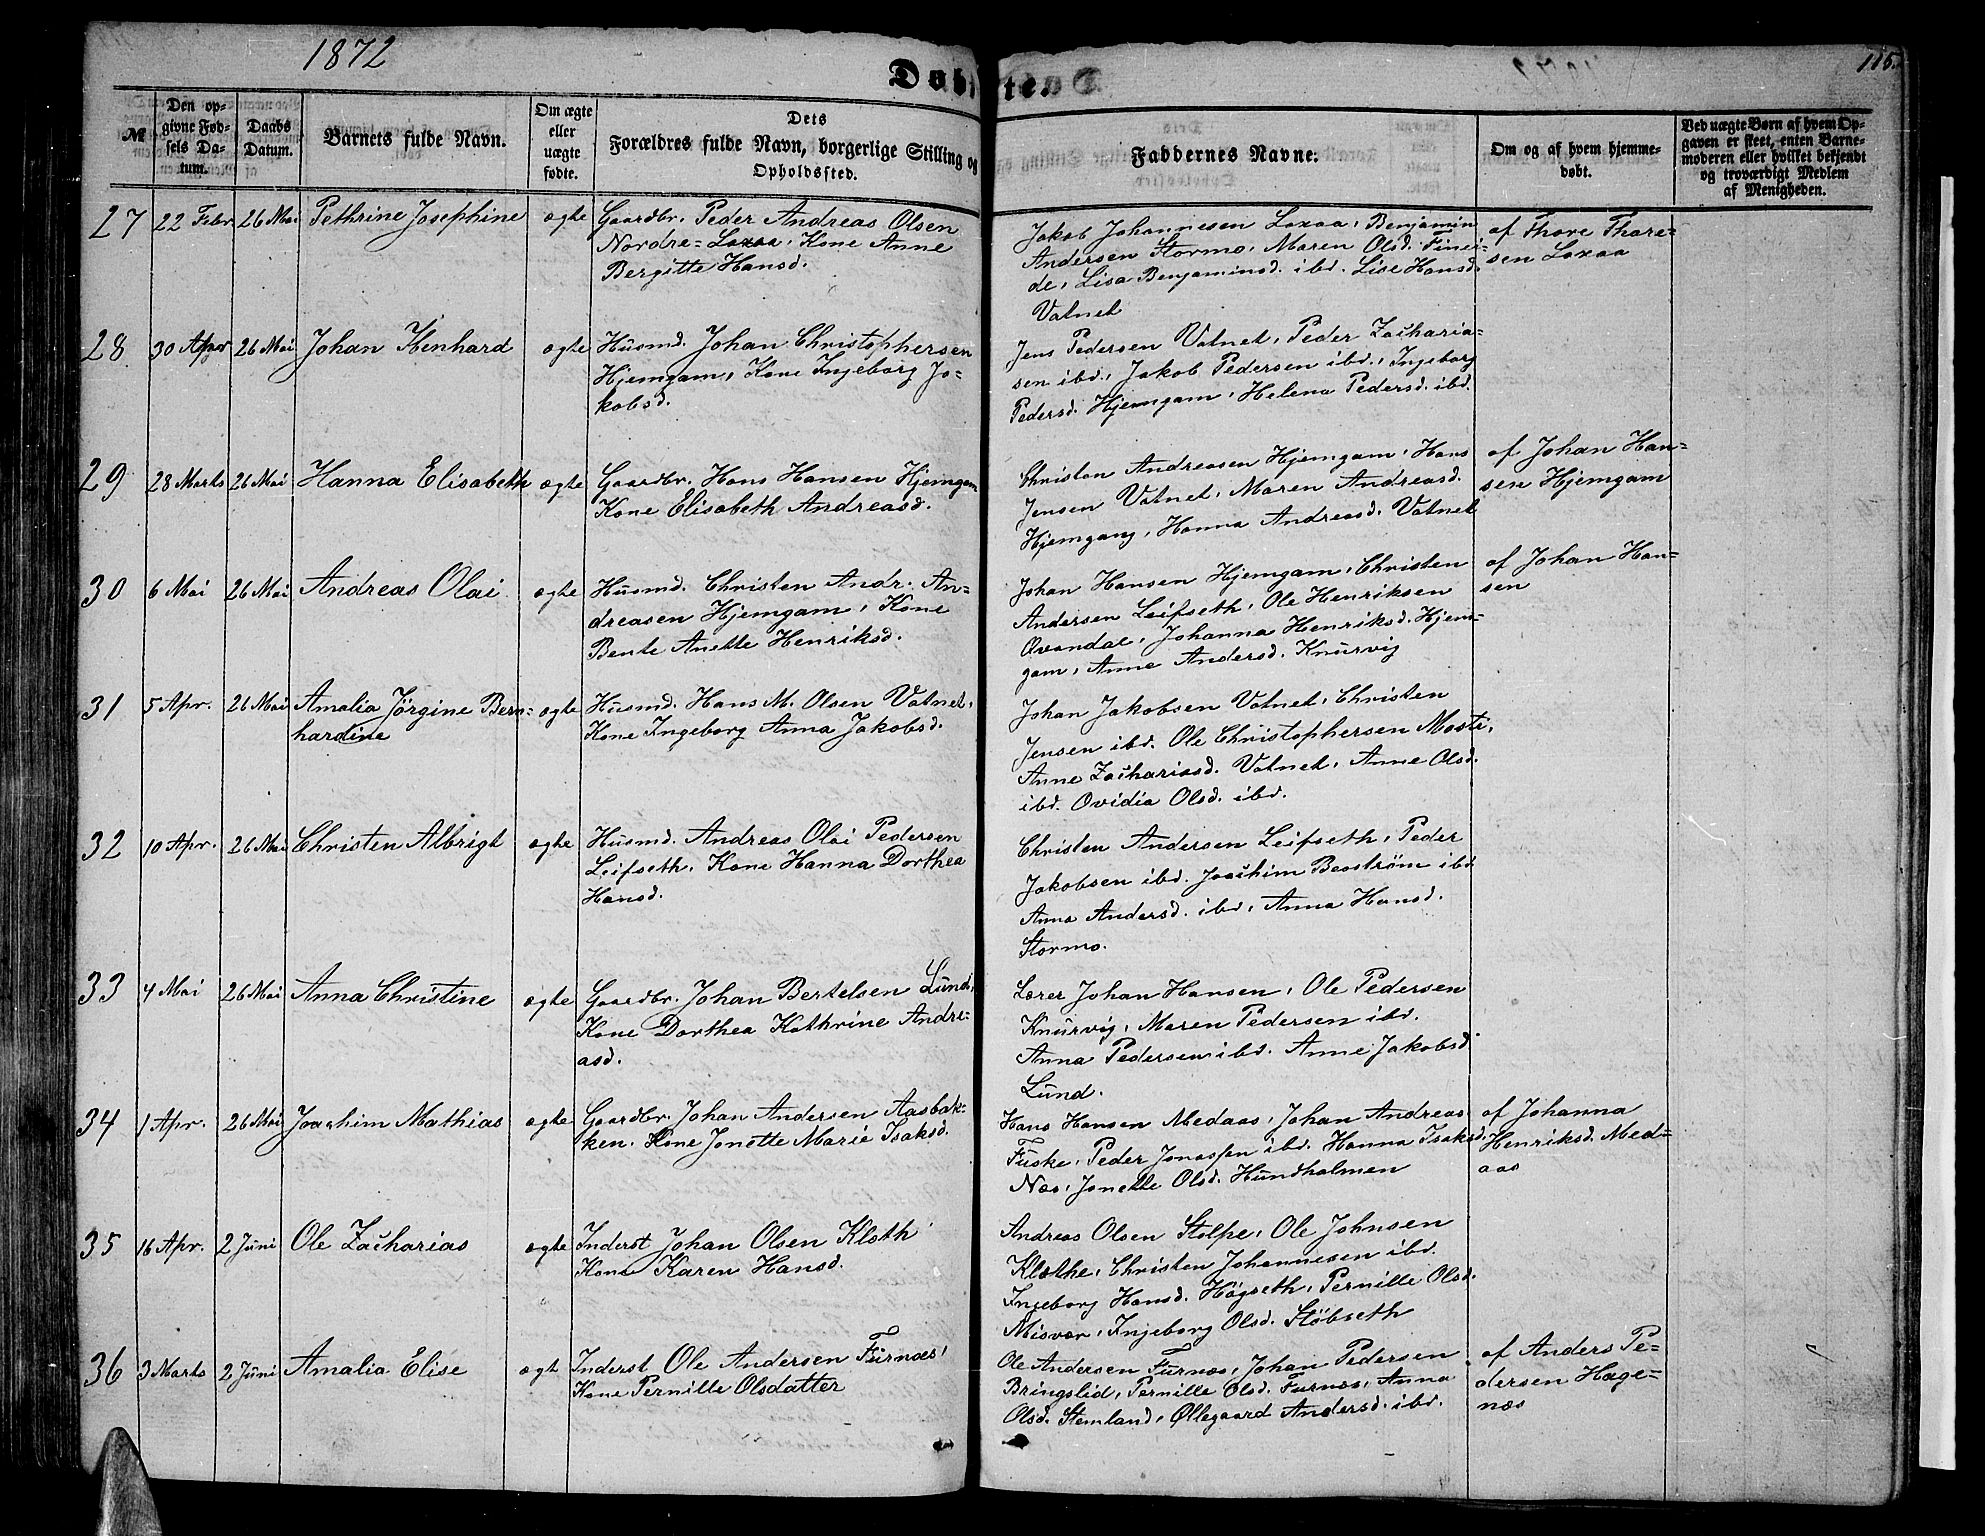 1872
Døbte.
115.
№
Den opgivne Fødsels Datum.
Daabs Datum.
Barnets fulde Navn.
Om ægte eller uægte fødte.
Dets
Forældres fulde Navn, borgerlige Stilling og
Opholdssted.
Faddernes Navne.
Om og af hvem hjemmedøbt.
Ved uægte Børn af hvem Opgaven er skeet, enten Barnemoderen eller hvilket bekjendt og troværdigt Medlem af Menigheden.
27 22 Febr 26 Mai Pethrine Josephine ægte Gaardbr. Peder Andreas Olsen
Nordre=Loxaa, Kone Anne
Bergitte Hansd.
Jakob Johannesen Loxaa, Benjamin
Andersen Stormo, Maren Olsd. Finei-
de, Lisa Benjaminsd. ibd. Lise Hansd.
Vatnet
af Thore Thore=
sen Loxaa
28 30 Apr 26 Mai Johan Ibenhard ægte Husmd. Johan Christophersen
Hjemgam, Kone Ingeborg Jo=
kobsd.
Jens Pedersen Vatnet, Peder Zacharia=
sen ibd., Jakob Pedersen ibd., Ingeborg
Pedersd. Hjemgam, Helena Pedersd. ibd.
29 28 Marts 26 Mai Hanna Elisabeth ægte Gaardbr. Hans Hansen Hjemgam
Kone Elisabeth Andreasd.
Christen Andreasen Hjemgam, Hans
Jensen Vatnet, Maren Andreasd.
Hjemgang, Hanna Andreasd. Vatnet
af Johan Han=
sen Hjemgam
30 6 Mai 26 Mai Andreas Olai ægte Husmd. Christen Andr. An=
dreasen Hjemgam, Kone
Bente Anette Henriksd.
Johan Hansen Hjemgam, Christen
Andersen Leifseth, Ole Henriksen
Øvandal, Johanna Henriksd. Hjem=
gam, Anne Andersd. Knurvig
af Johan Han=
sen
31 5 Apr. 26 Mai Amalia Jörgine Bern= ægte Husmd. Hans M. Olsen Vatnet,
hardine
Kone Ingeborg Anna Jakobsd.
Johan Jakobsen Vatnet, Christen
Jensen ibd. Ole Christophersen Moste,
Anne Zachariasd. Vatnet, Anne Olsd.
ibd. Ovidia Olsd. ibd.
32 10 Apr. 26 Mai Christen Albrigt ægte Husmd. Andreas Olai Pedersen
Leifseth, Kone Hanna Dorthea
Hansd.
Christen Andersen Leifseth, Peder
Jakobsen ibd. Joachim Beoström ibd
Anna Andersd. ibd, Anna Hansd.
Stormo.
33 4 Mai 26 Mai Anna Christine ægte Gaardbr. Johan Bertelsen Lund,
Kone Dorthea Kathrine Andre=
asd.
Lærer Johan Hansen, Ole Pedersen
Knurvig, Maren Pedersen ibd.
Anna Pedersen ibd. Anne Jakobsd
Lund.
34 1 Apr. 26 Mai Joachim Mathias ægte Gaardbr. Johan Andersen Aasbak=
ken. Kone Jonette Marie Isaksd.
Hans Hansen Medaas, Johan Andreas
Fuske, Peder Jonassen ibd. Hanna Isaksd.
Næs, Jonette Olsd. Hundholmen
af Johanna
Henriksd. Med=
aas
35 16 Apr. 2 Juni Ole Zacharias ægte Inderst Johan Olsen Kloth
Kone Karen Hansd.
Andreas Olsen Stolpe, Ole Johnsen
Klothe, Christen Johannesen ibd.
Ingeborg Hansd. Høgseth, Pernille Olsd.
Misvær, Ingeborg Olsd. Støbseth
36 3 Marts 2 Juni Amalia Elise ægt Inderst Ole Andersen Furnæs,
Kone Pernille Olsdatter
Ole Andersen Furnæs, Johan Pedersen
Bringslid, Pernille Olsd. Furnæs, Anna
Olsd. Stemland, Øllegaard Andersd. ibd.
af Anders Pe=
dersen Hage=
næs